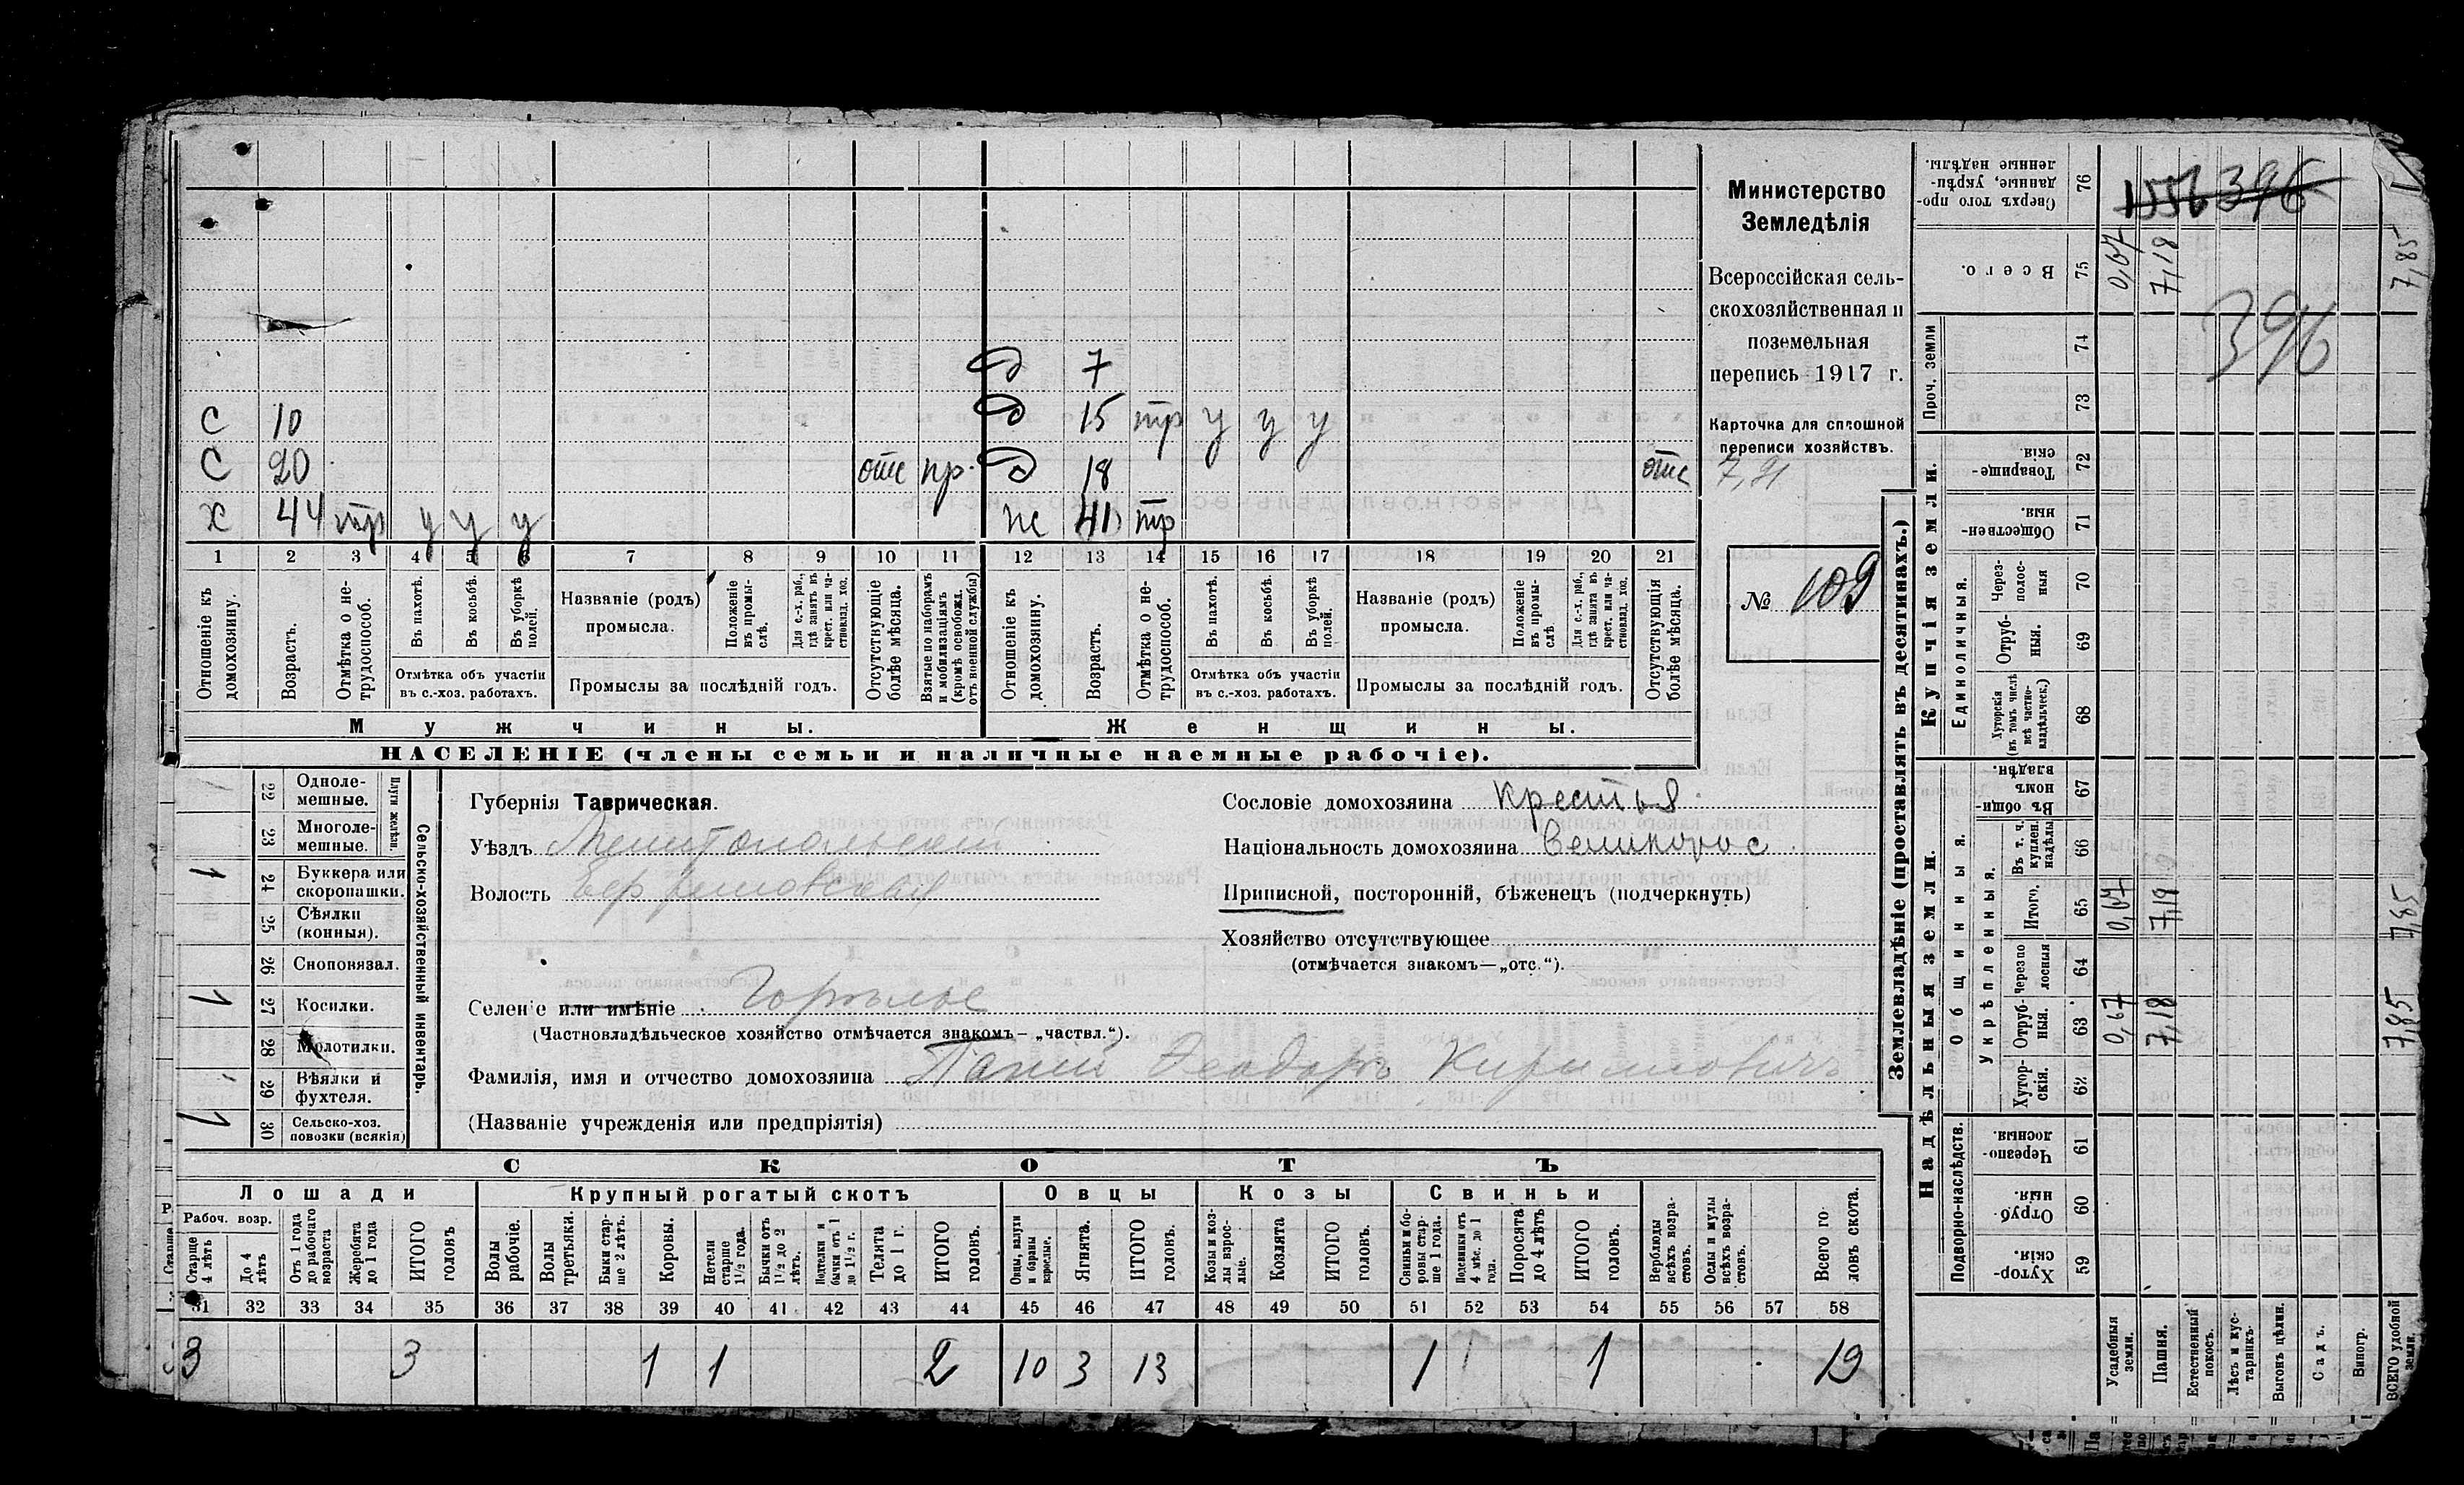 Министерство
Земледѣлія
Всероссійская сель-
скохозяйственная и
поземельная
перепись 1917 г.
Карточка для сплошной
переписи хозяйствъ.
7,91
№ 109
д 7
С 10 д 15 тр у у у
С 20 отс пр. д 18 отс
х 44 тр у у у ж 41 тр
1 2 3 4 5 6 7 8 9 10 11 12 13 14 15 16 17 18 19 20 21
Отношеніе къ домохозяину.
Возрастъ.
Отмѣтка о не-трудоспособ.
Въ пахотѣ.
Въ косьбѣ.
Въ уборкѣ полей.
Отмѣтка объ участіи
въ с.-хоз. работахъ.
Названіе (родъ)
промысла.
Положеніе въ промы-слѣ.
Для с.-х. раб., гдѣ занятъ въ крест. или ча-стновлад. хоз.
Промыслы за послѣдній годъ.
Отсутствующіе болѣе мѣсяца.
Взятые по наборамъ и мобилизаціямъ (кромѣ освобожд. отъ военной службы)
Отношеніе къ домохозяину.
Возрастъ.
Отмѣтка о не-трудоспособ.
Въ пахотѣ.
Въ косьбѣ.
Въ уборкѣ полей.
Отмѣтка объ участіи
въ с.-хоз. работахъ.
Названіе (родъ)
промысла.
Положеніе въ промы-слѣ.
Для с.-х. раб., гдѣ занята въ крест. или ча-стновлад. хоз.
Промыслы за послѣдній годъ.
Отсутствующія болѣе мѣсяца.
Мужчины.
Женщины.
НАСЕЛЕНІЕ (члены семьи и наличные наемные рабочіе).
22 Одноле-мешные.
23 Многоле-мешные.
Плуги желѣзн.
1 24 Буккера или скоропашки.
25 Сѣялки (конныя).
26 Сноповязал.
1 27 Косилки.
28 Молотилки.
29 Вѣялки и фухтеля.
1 30 Сельско-хоз. повозки (всякія)
Сельско-хозяйственный инвентарь.
Губернія Таврическая.
Уѣздъ Мелитопольскій
Волость Ефремовская
Селеніе или имѣніе Горѣлое
(Частновладѣльческое хозяйство отмѣчается знакомъ—„частвл.“).
Фамилія, имя и отчество домохозяина Феодоръ Кириловичъ
(Названіе учрежденія или предпріятія)
Сословіе домохозяина Крестья
Національность домохозяина Великорос
Приписной, посторонній, бѣженецъ (подчеркнуть)
Хозяйство отсутствующее
(отмѣчается знакомъ—„отс.“).
СКОТЪ
Лошади
Крупный рогатый скотъ
Овцы
Козы
Свиньи
Рабоч. возр.
Старше 4 лѣтъ
До 4 лѣтъ
Отъ 1 года до рабочаго возраста
Жеребята до 1 года
ИТОГО головъ
Волы рабочіе.
Волы третьяки.
Быки стар-ше 2 лѣтъ.
Коровы.
Нетели старше 1½ года.
Бычки отъ 1½ до 2 лѣтъ.
Подтелки и бычки отъ 1 до 1½ г.
Телята до 1 г.
ИТОГО головъ.
Овцы, валухи и бараны взрослые.
Ягнята.
ИТОГО головъ.
Козы и коз-лы взрос-лые.
Козлята
ИТОГО головъ.
Свиньи и бо-ровы стар-ше 1 года.
Подсвинки отъ 4 мѣс. до 1 года.
Поросята до 4 лѣтъ
ИТОГО головъ.
Верблюды всѣхъ возра-стовъ.
Ослы и мулы всѣхъ возра-стовъ.
Всего го-ловъ скота.
31 32 33 34 35 36 37 38 39 40 41 42 43 44 45 46 47 48 49 50 51 52 53 54 55 56 57 58
3 3 1 1 2 10 3 13 1 1 19
Землевладѣніе (проставлять въ десятинахъ.)
Надѣльныя земли.
Купчія земли.
Проч. земли
Подворно-наслѣдств.
Общинныя.
Укрѣпленныя.
Единоличныя.
Сверхъ того про-данные, укрѣп-ленные надѣлы. 76
Всего. 75 0,67 7,18 7,85
74
73
Товарище-скія 72
Обществен-ныя. 71
Через-полос-ныя 70
Отруб-ныя. 69
Хуторскія (въ томъ числѣ всѣ частно-владѣльческ.) 68
Въ общи-номъ владѣн. 67
Въ т. ч. куплен. надѣлы 66
Итого. 65 0,67 7,19 7,85
Черезпо лосныя 64
Отруб-ныя. 63 0,67 7,18 7,85
Хутор-скія. 62
Черезпо-лосныя. 61
Отруб-ныя. 60
Хутор-скія. 59
Усадебныя земли.
Пашня.
Естественный покосъ.
Лѣсъ и кус-тарникъ.
Выгонъ цѣлин.
Садъ.
Виногр.
ВСЕГО удобной земли.
396
396